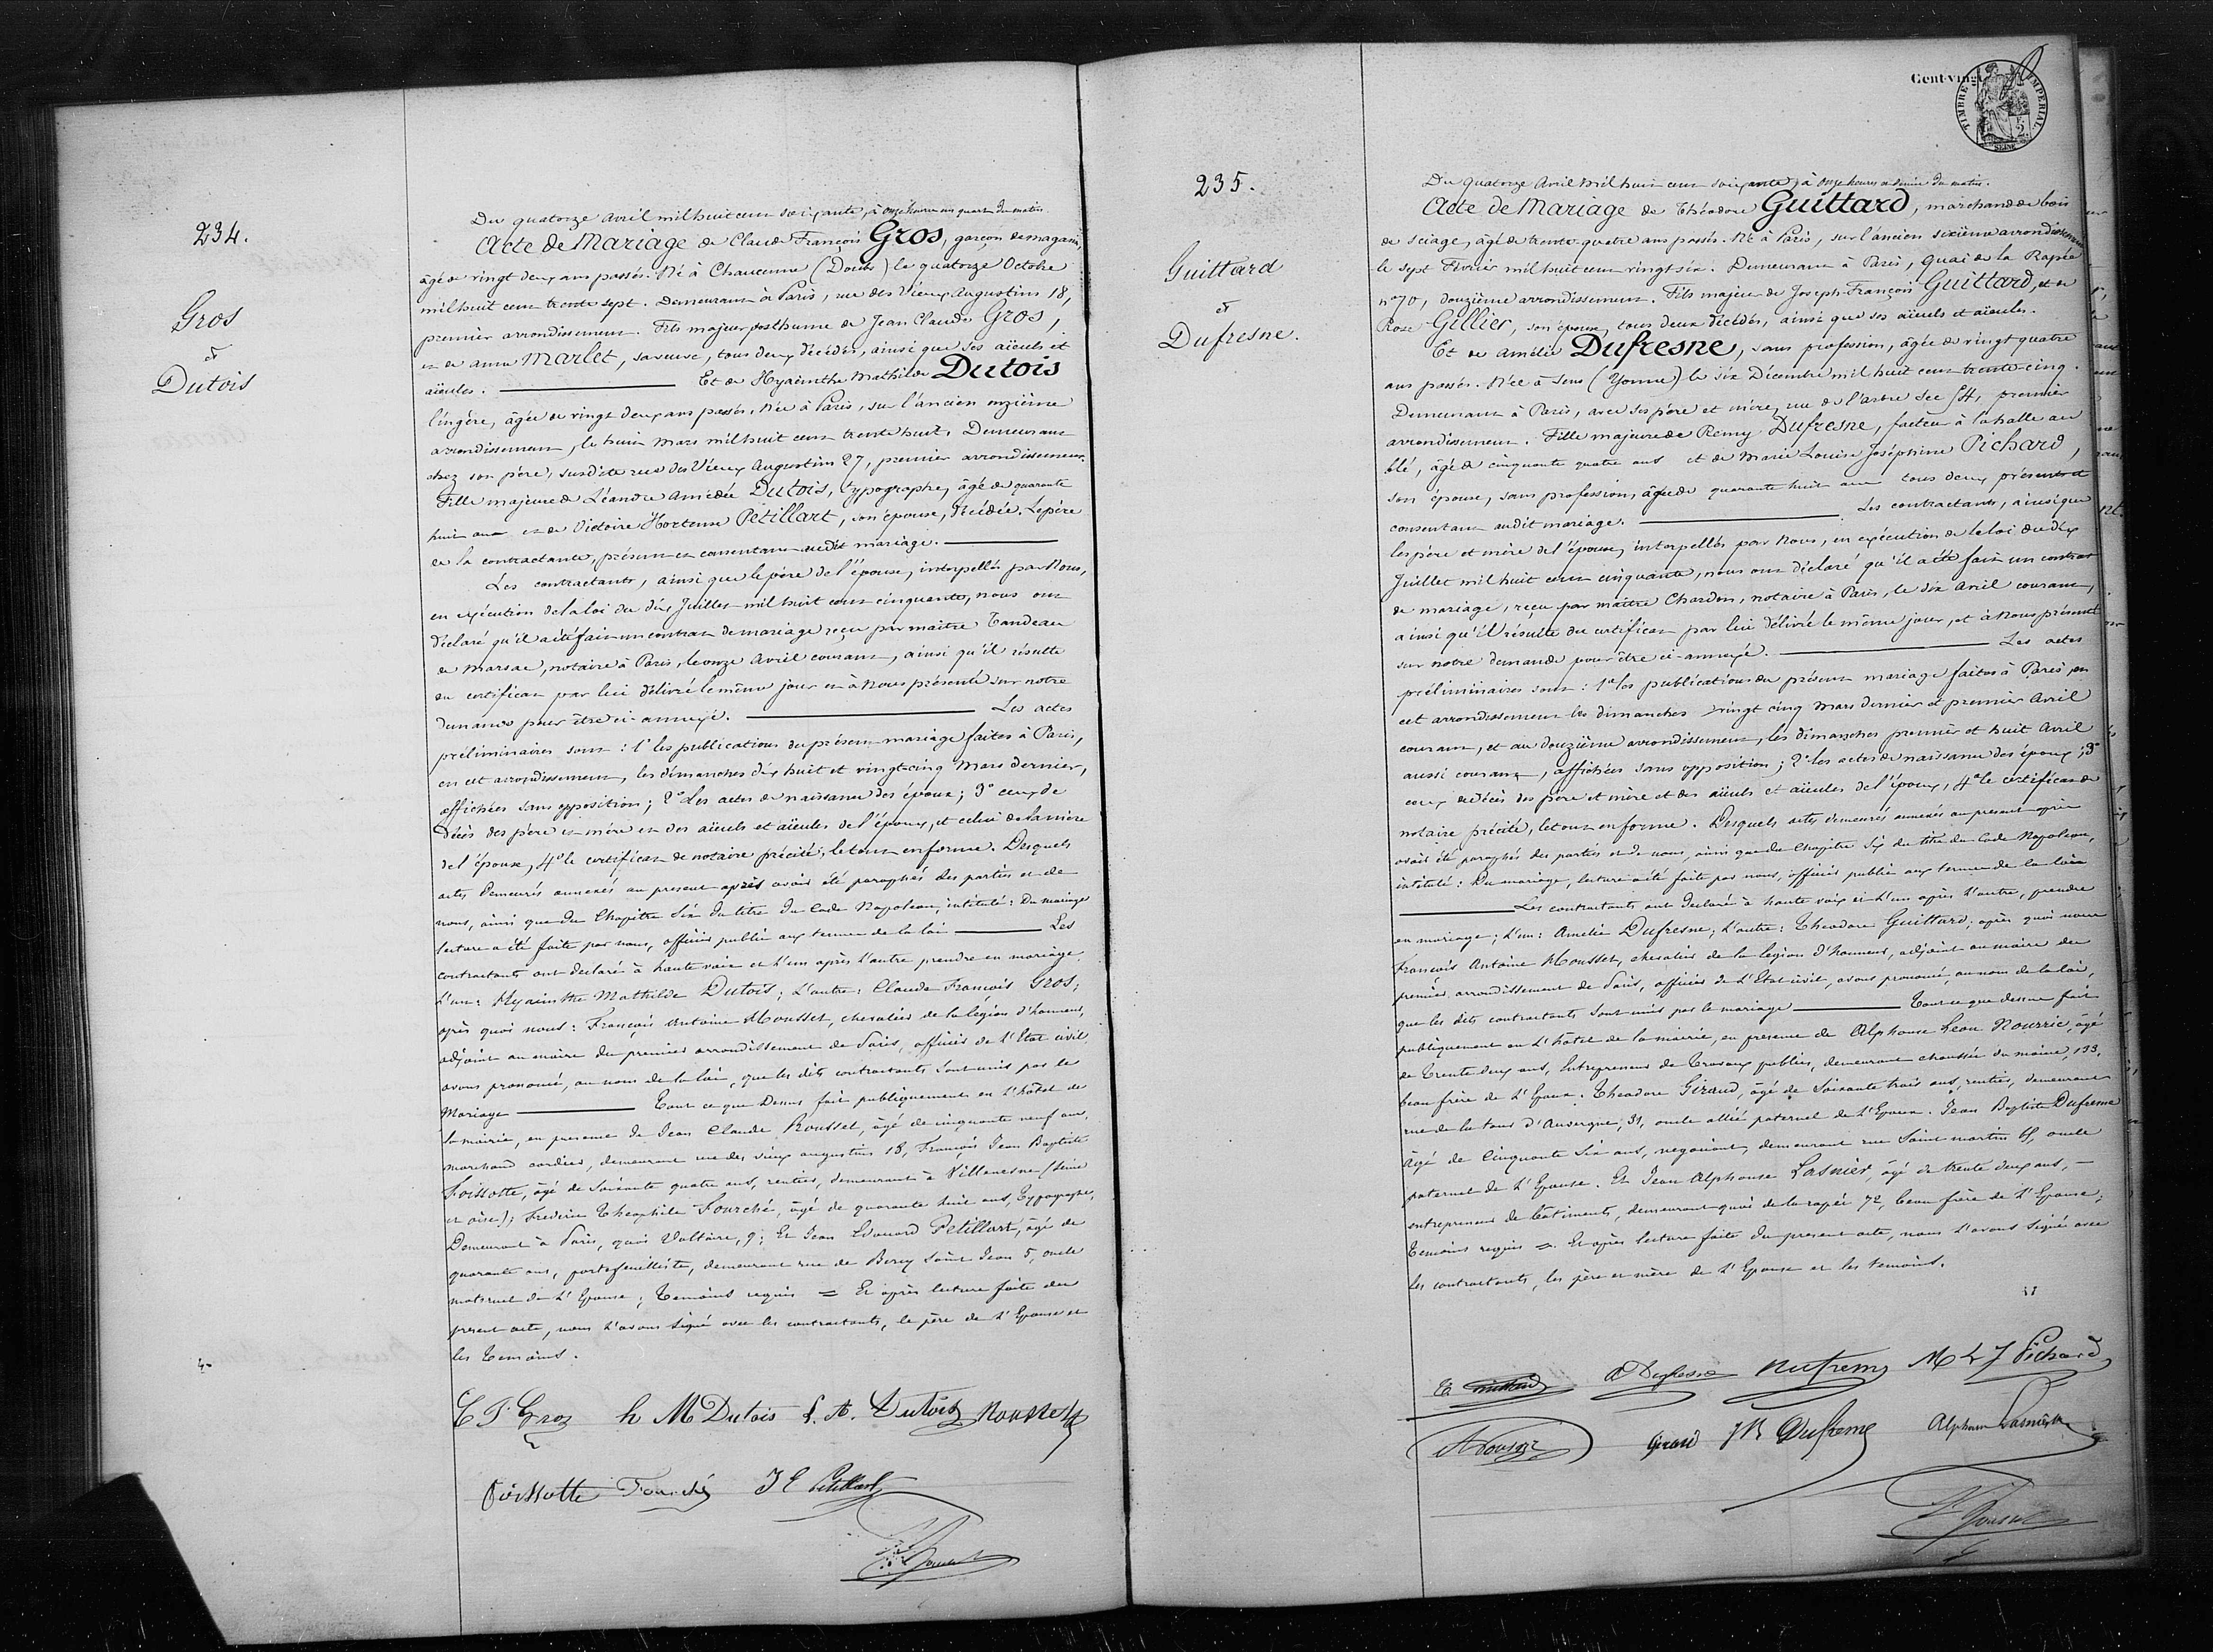 234.
Gros
et
Dutois
Du quatorze avril mil huit cent soixante, à onze heures un quart du matin
Acte de Mariage de Claude François Gros, garçon de magasin,
âgé de vingt deux ans passés. Né à Chaucenne (Doubs) le quatorze Octobre
mil huit cent trente sept. Demeurant à Paris, rue des Vieux Augustins 18,
premier arrondissement. Fils majeur posthume de Jean Claude Gros,
et de anne Marlet, sa veuve, tous deux décédés, ainsi que ses aïeuls et
aïeules. Et de Hyacinthe Mathilde Dutois
lingère, âgée de vingt deux ans passés. Née à Paris, sur l'ancien onzième
arrondissement, le huit Mars mil huit cent trente huit. Demeurant
chez son père, susdite rue des Vieux Augustins 27, premier arrondissement.
Fille majeure de Léandre Amédée Dutois, typographe, âgé de quarante
huit ans et de Victoire Hortense Petillart, son épouse, décédée. Le père
de la contractante, présent et consentant audit mariage.
Les contractants, ainsi que le père de l'épouse, interpellés par Nous,
en exécution de la loi du dix Juillet mil huit cent cinquante, nous ont
déclaré qu'il a été fait un contrat de mariage reçu par maître Tandeau
de Marsac, notaire à Paris, le onze Avril courant, ainsi qu'il résulte
du certificat par lui délivré le même jour et à Nous présenté sur notre
demande pour être ci-annexé. Les actes
préliminaires sont : 1° les publications du présent mariage faites à Paris,
en cet arrondissement, les dimanches dix huit et vingt-cinq Mars dernier,
affichées sans opposition; 2° Les actes de naissance des époux; 3° ceux de
décès des père et mère et des aïeuls et aïeules de l'époux, et celui de la mère
de l'épouse, 4° le certificat de notaire précité; le tout en forme. Desquels
actes demeurés annexés au present après avoir été paraphés des parties et de
nous, ainsi que du Chapitre Six du titre du Code Napoléon, intitulé: Du mariage
lecture a été faite par nous, officier public aux termes de la loi Les
contractants ont declaré à haute voix et l'un après l'autre prendre en mariage,
L'un: Hyacinthe Mathilde Dutois; L'autre: Claude François Gros;
après quoi nous: François Antoine Mousset, chevalier de la légion d'honneur,
adjoint au maire du premier arrondissement de Paris, officier de l'Etat civil
avons prononcé, au nom de la loi, que les dits contractants sont unis par le
Mariage Tout ce que dessus fait publiquement en l'hôtel de
la mairie, en presence de Jean Claude Rousset, âgé de cinquante neuf ans,
marchand cordier, demeurant rue des vieux augustins 18, François Jean Baptiste
Foissotte, âgé de soixante quatre ans, rentier, demeurant à Villevesne (Seine
et oise); Frederic Theophile Fourché, âgé de quarante huit ans, Typographe,
Demeurant à Paris, quai Voltaire, 9; Et Jean Edouard Petillart, âgé de
quarante ans, portefeuilliste, demeurant rue de Bercy Saint Jean 5, oncle
maternel de l'Epouse; Temoins requis = Et après lecture faite du
present acte, nous l'avons signé avec les contractants, le père de l'Epouse et
les Temoins.
C F Gros h M Dutois L. A. Dutois Rousset
foissotte Fourché J E Petillart
235.
Guittard
et
Dufresne.
Cent-vingt
TIMBRE IMPERIAL
2
SEINE
Du quatorze Avril mil huit cent soixante, à onze heures et demie du matin.
Acte de Mariage de Théodore Guittard, marchand de bois
de sciage, âgé de trente-quatre ans passés. Né à Paris, sur l'ancien sixième arrondissement
le sept Février mil huit cent vingt six. Demeurant à Paris, quai de la Rapée
n° 70, douzième arrondissement. Fils majeur de Joseph-François Guittard, et de
Rose Gillier, son épouse, tous deux décédés, ainsi que ses aïeuls et aïeules.
Et de Amélie Dufresne, sans profession, âgée de vingt quatre
ans passés. Née à Sens (Yonne) le six Décembre mil huit cent trente-cinq.
Demeurant à Paris, avec ses père et mère, rue de l'arbre sec 54, premier
arrondissement. Fille majeure de Remy Dufresne, facteur à la halle au
blé, âgé de cinquante quatre ans et de Marie Louise Joséphine Pichard,
son épouse, sans profession, âgée de quarante huit ans tous deux présents et
consentant audit mariage. Les contractants, ainsi que
les père et mère de l'épouse, interpellés par Nous, en exécution de la loi du dix
Juillet mil huit cent cinquante, nous ont déclaré qu'il a été fait un contrat
de mariage, reçu par maître Chardon, notaire à Paris, le dix Avril courant,
ainsi qu'il résulte du certificat par lui délivré le même jour, et à Nous présenté
sur notre demande pour être ci-annexé. Les actes
préliminaires sont : 1° les publications du présent mariage faites à Paris, en
cet arrondissement les dimanches vingt cinq Mars dernier et premier Avril
courant, et au douzième arrondissement, les dimanches premier et huit Avril
aussi courant, affichées sans opposition; 2° les actes de naissance des époux; 3°
ceux de décès des père et mère et des aïeuls et aïeules de l'époux, 4° le certificat de
notaire précité, le tout en forme. Desquels actes demeurés annexés au present après
avoir été paraphés des parties et de nous, ainsi que du Chapitre Six du titre du Code Napoléon,
intitulé: Du mariage, lecture a été faite par nous, officier public aux termes de la loi
Les contractants ont declaré à haute voix et l'un après l'autre, prendre
en mariage; L'un: Amelie Dufresne; L'autre: Theodore Guittard; après quoi nous
François Antoine Mousset, chevalier de la légion d'honneur, adjoint au maire du
premier arrondissement de Paris, officier de l'Etat civil, avons prononcé, au nom de la loi,
que les dits contractants sont unis par le mariage Tout ce que dessus fait
publiquement en l'hôtel de la mairie, en presence de Alphonse Leon Nourric, âgé
de Trente deux ans, Entrepreneur de Travaux publics, demeurant chaussée du maine, 133,
beau frère de l'Epoux. Theodore Giraud, âgé de soixante trois ans, rentier, demeurant
rue de la tour d'Auvergne, 31, oncle allié paternel de l'Epoux. Jean Baptiste Dufresne
âgé de Cinquante Six ans, negociant, demeurant rue Saint martin, oncle
paternel de l'Epouse. Et Jean Alphonse Lasnier, âgé de trente deux ans,
entrepreneur de bâtiments, demeurant quai de la rapée 72, beau frère de l'Epouse;
Temoins requis = Et après lecture faite du present acte, nous l'avons signé avec
les contractants, les père et mère de l'Epouse et les temoins.
T. Guittard A Dufresne Dufresne M L J Pichard
Giraud J B Dufresne Alphonse Lasnier